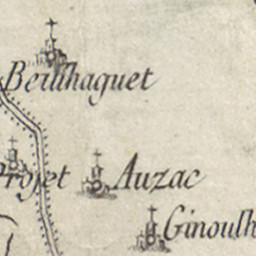 Beilhaguet
Projet
Auzac
Ginoulh